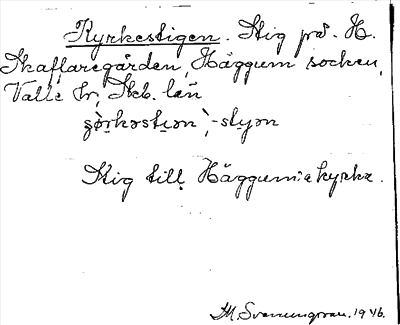 Kyrkestigen. Stig på H.
Skattaregården, Häggum socken,
Valle hr, Skb. län
Stig till Häggums kyrka.
M Svanungsson. 1946.